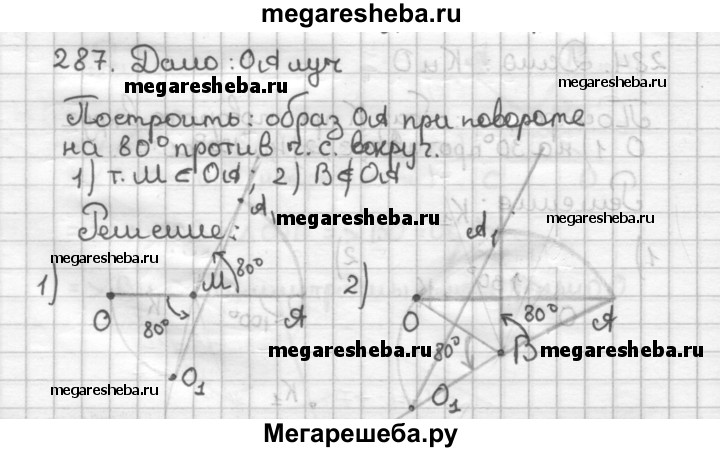 megaresheba.ru
287. Дано: OA луч
megaresheba.ru megaresheba.ru
Построить: образ OA при повороте
на 80° против ч.с. вокруг.
1) т. M ⊂ OA; 2) B ∉ OA
megaresheba.ru megaresheba.ru
Решение:
megaresheba.ru
1) O M A 80° 80° A₁ O₁
2) O A 80° 80° B A₁ O₁
megaresheba.ru megaresheba.ru
megaresheba.ru megaresheba.ru
Мегарешеба.ру